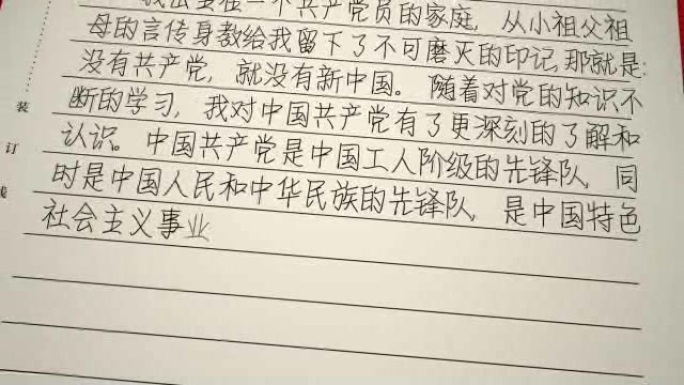 我出生在一个共产党员的家庭，从小祖父祖
母的言传身教给我留下了不可磨灭的印记，那就是：
没有共产党，就没有新中国。随着对党的知识不
断的学习，我对中国共产党有了更深刻的了解和
认识。中国共产党是中国工人阶级的先锋队，同
时是中国人民和中华民族的先锋队，是中国特色
社会主义事业
装
订
线